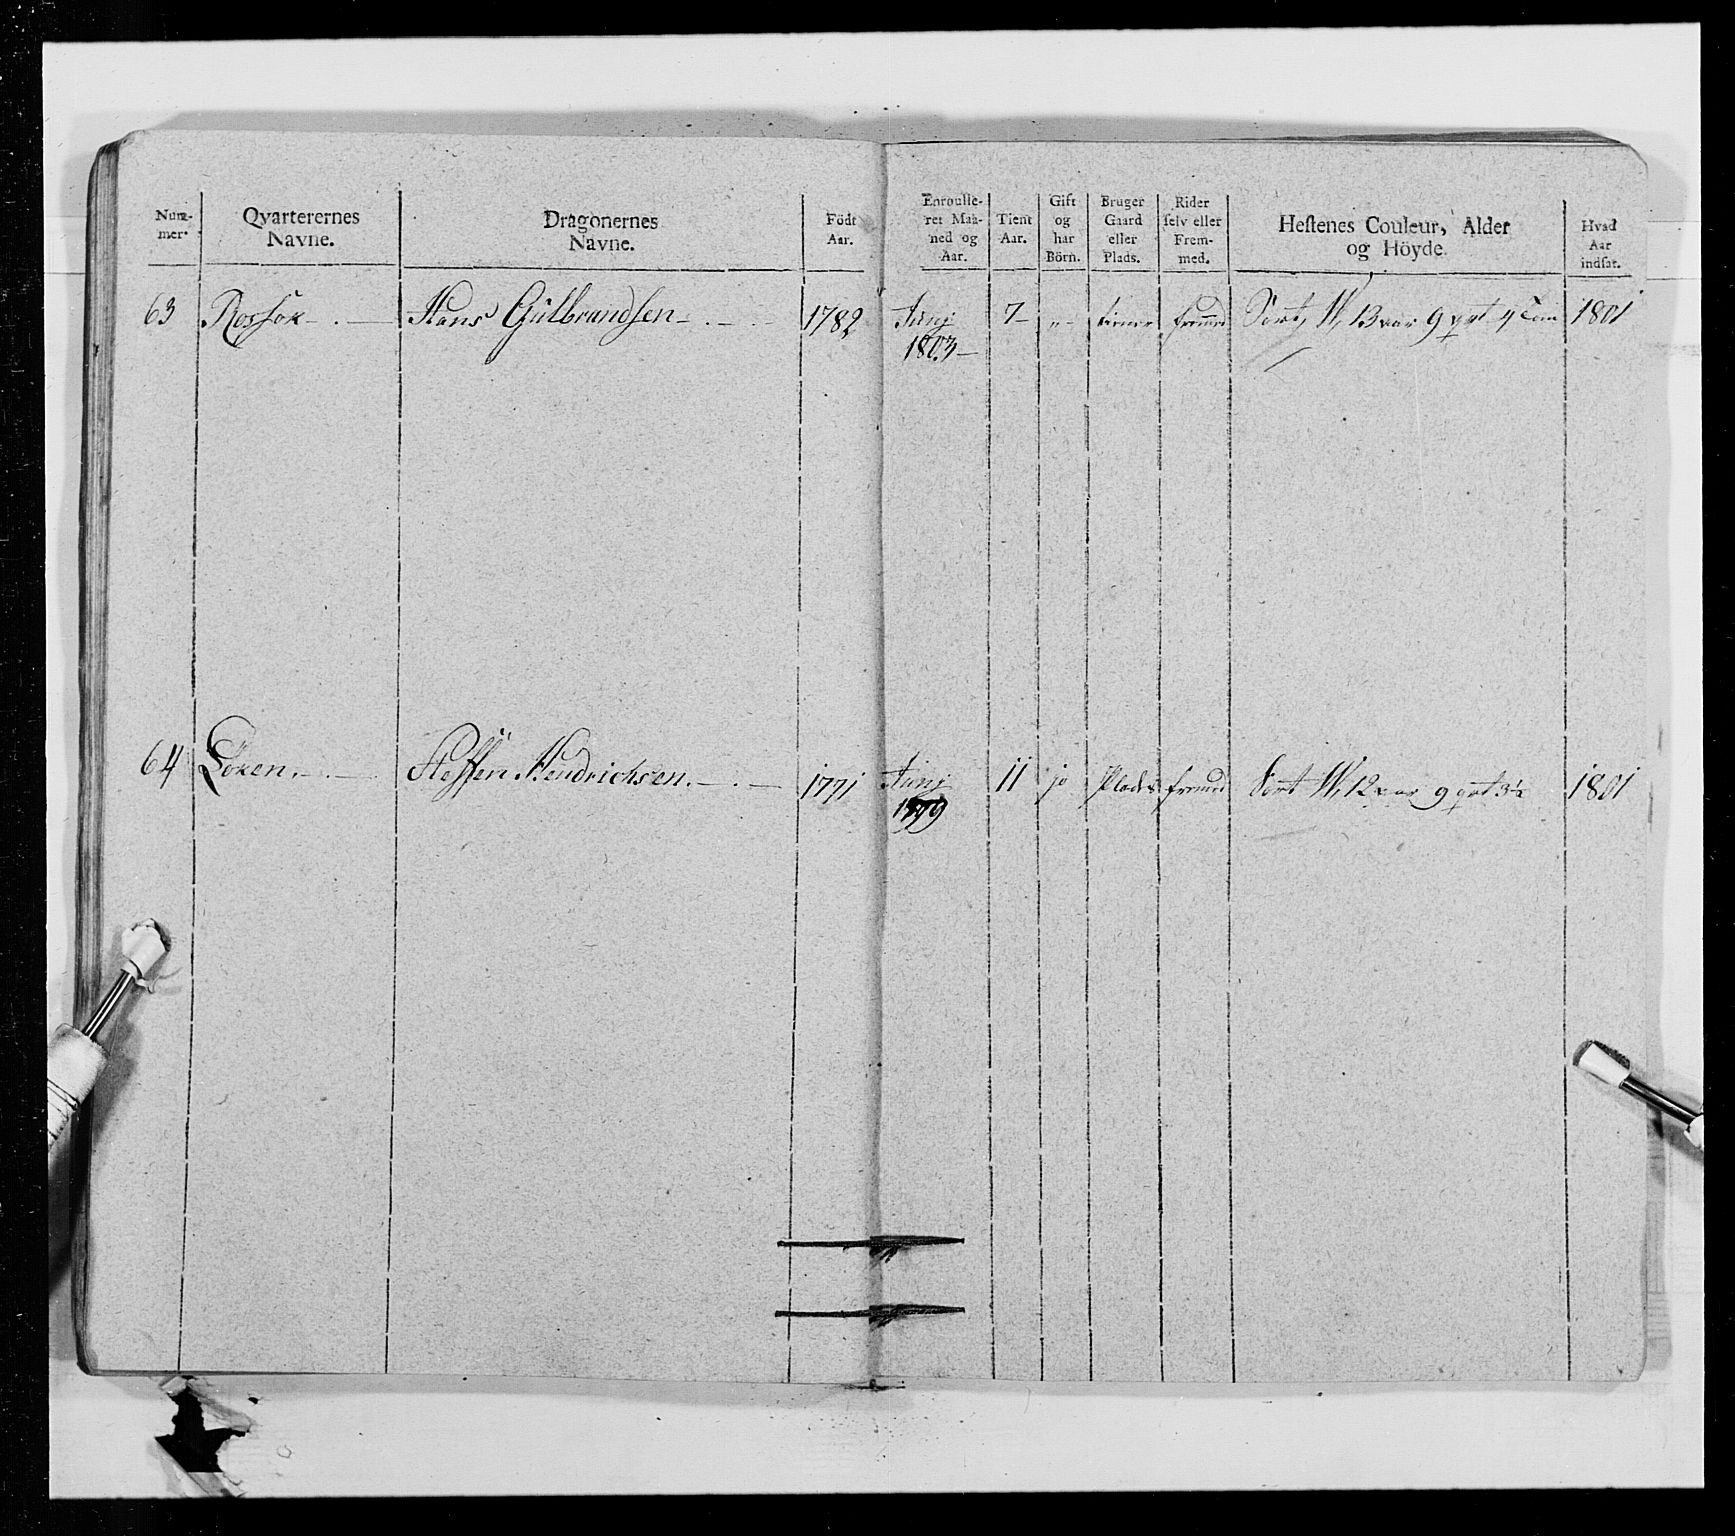 Num-
mer.
Qvarterernes
Navne.
Dragonernes
Navne.
Födt
Aar.
Enroulle-
ret Maa-
ned og
Aar.
Tient
Aar.
Gift
og
har
Börn.
Bruger
Gaard
eller
Plads.
Rider
selv eller
Frem-
med.
Hestenes Couleur, Alder
og Höyde.
Hvad
Aar
indsat.
63 Hans Gülbrandsen 1782 Junj 7 „ tiener fremed Sort, W, 13 aar 9 qrt 4 Tom 1801
1803
64 Löken Steffen Hendrichsen 1771 Junj 11 ja Plads fremed Sort W, 12 aar 9 qrt 3½ 1801